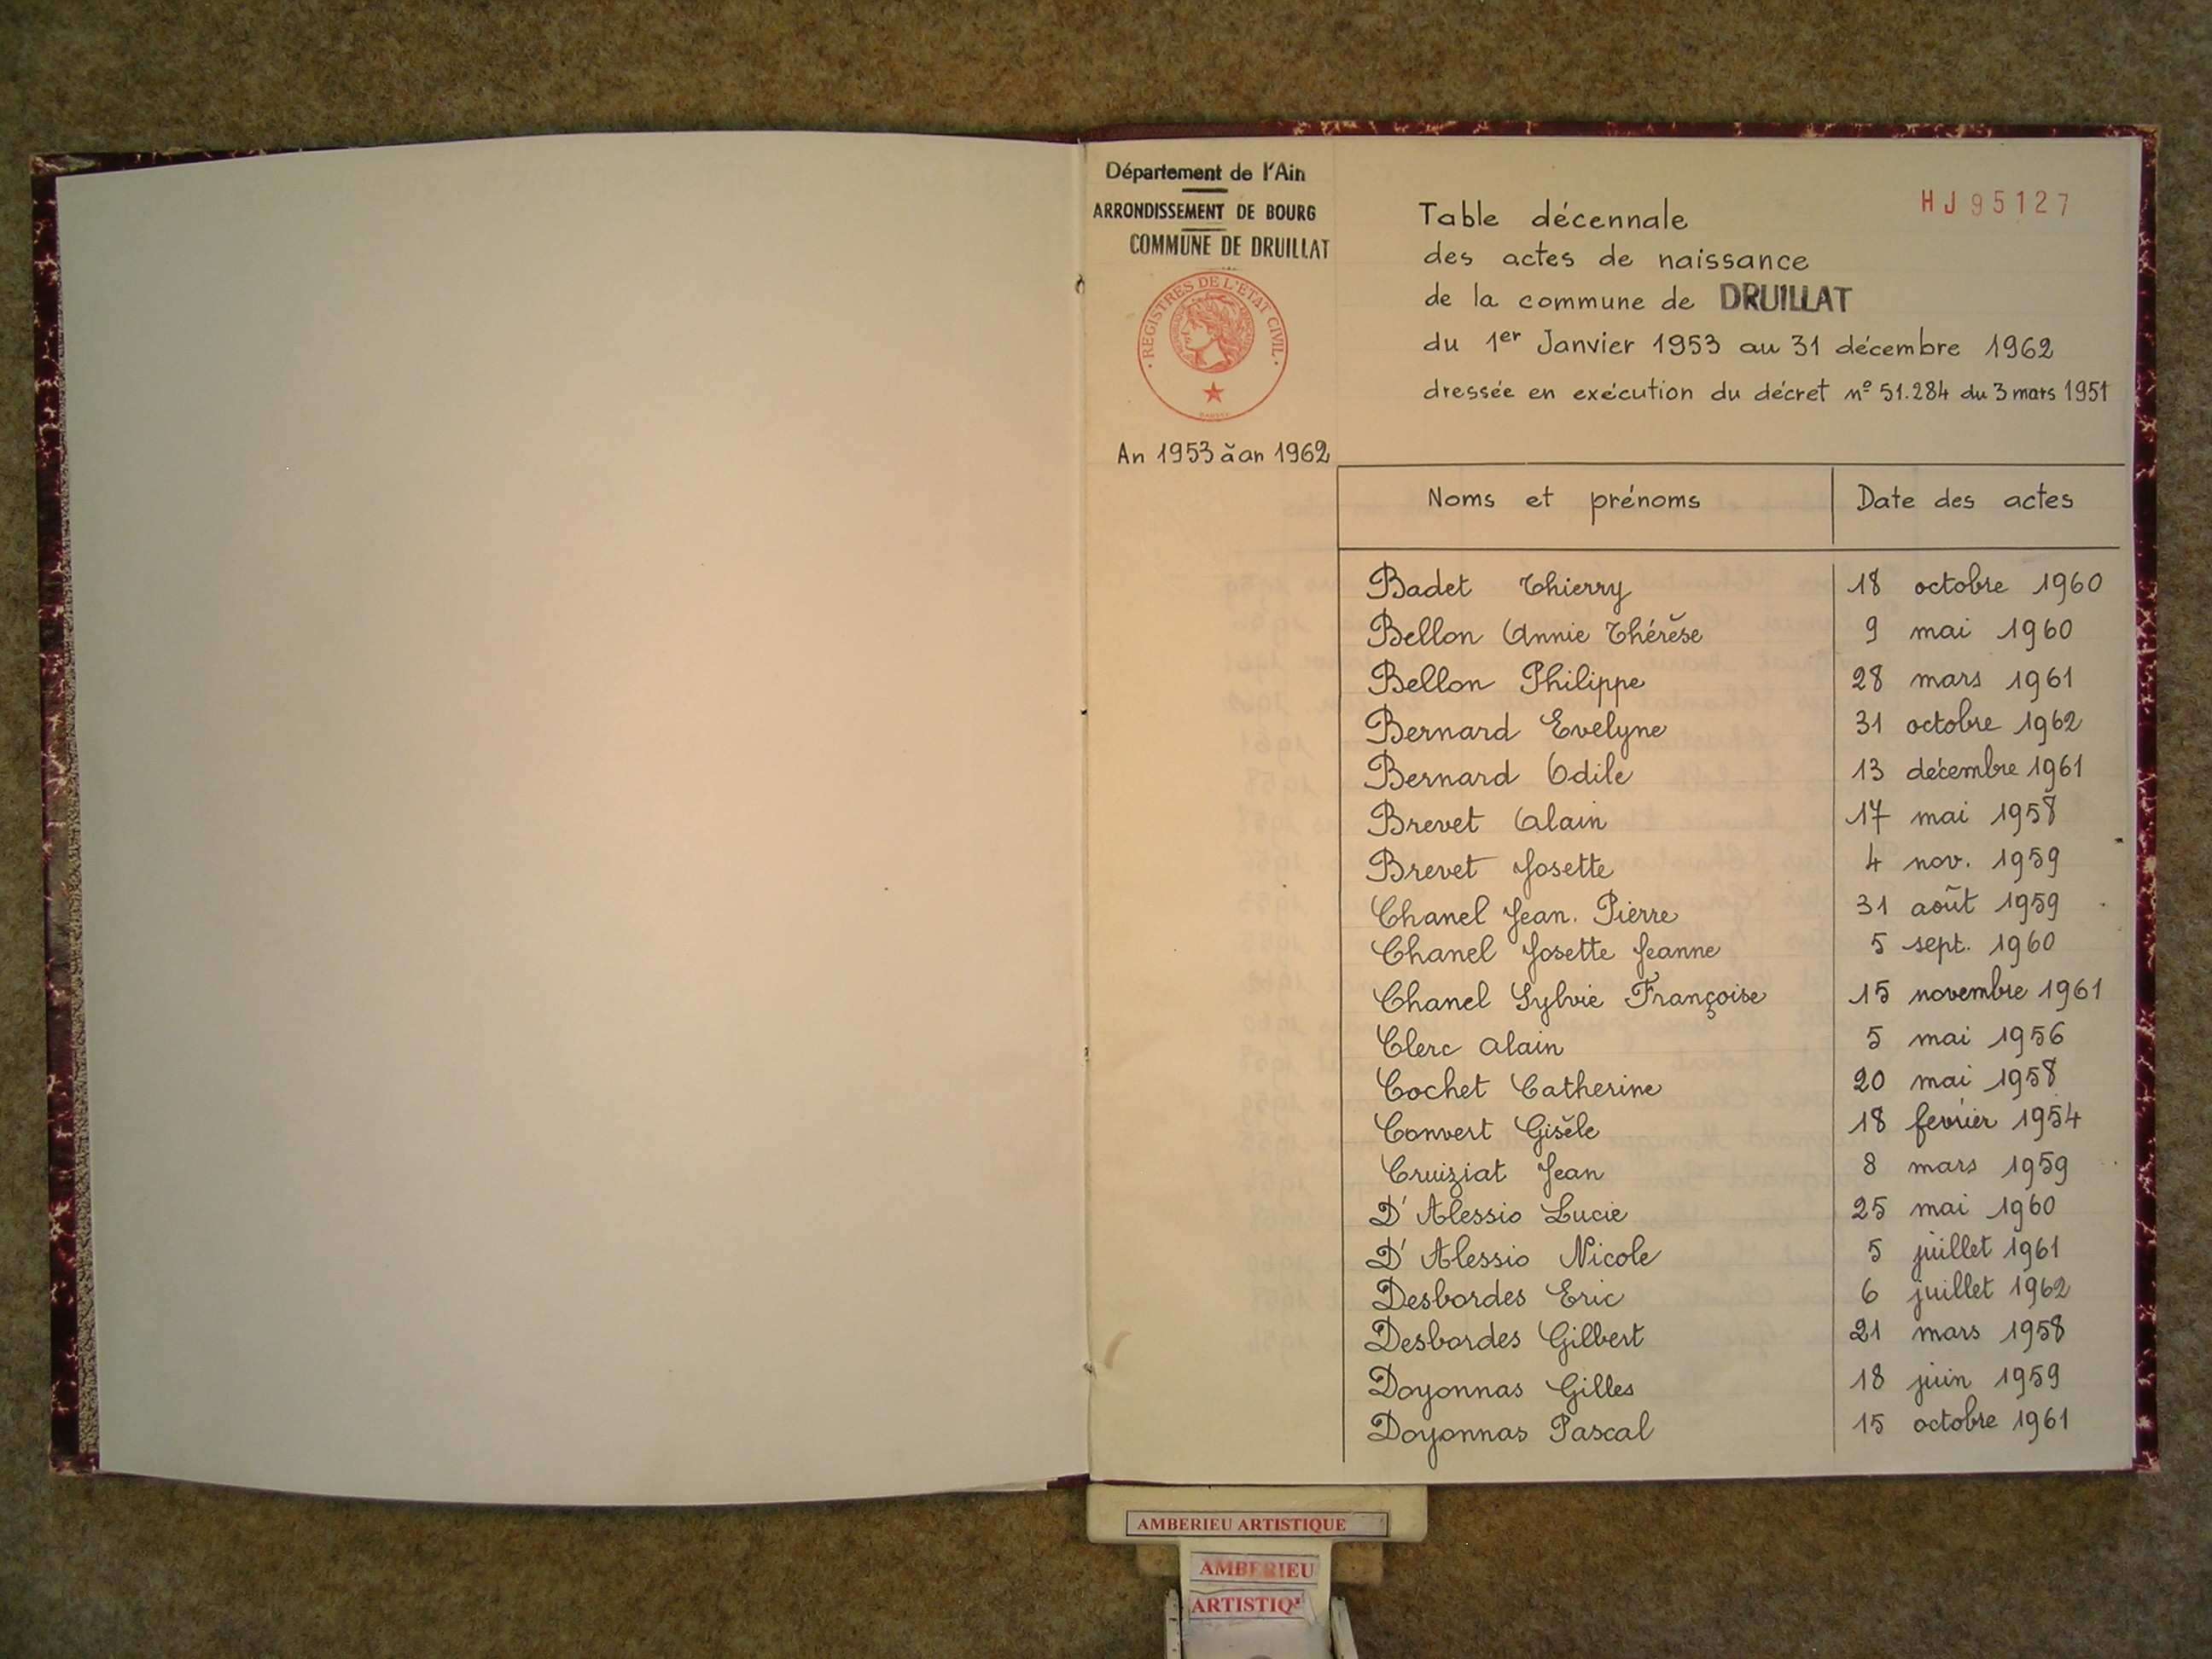 Département de l'Ain
ARRONDISSEMENT DE BOURG
COMMUNE DE DRUILLAT
REGISTRES DE L'ETAT CIVIL
An 1953 à an 1962
HJ95127
Table décennale
des actes de naissance
de la commune de DRUILLAT
du 1er Janvier 1953 au 31 décembre 1962
dressée en exécution du décret nº 51.284 du 3 mars 1951
Noms et prénoms Date des actes
Badet Thierry 18 octobre 1960
Bellon Annie Thérèse 9 mai 1960
Bellon Philippe 28 mars 1961
Bernard Evelyne 31 octobre 1962
Bernard Odile 13 décembre 1961
Brevet Alain 17 mai 1958
Brevet Josette 4 nov. 1959
Chanel Jean. Pierre 31 août 1959
Chanel Josette Jeanne 5 sept. 1960
Chanel Sylvie Françoise 15 novembre 1961
Clerc Alain 5 mai 1956
Cochet Catherine 20 mai 1958
Convert Gisèle 18 fevrier 1954
Cruiziat Jean 8 mars 1959
D'Alessio Lucie 25 mai 1960
D'Alessio Nicole 5 juillet 1961
Desbordes Eric 6 juillet 1962
Desbordes Gilbert 21 mars 1958
Doyonnas Gilles 18 juin 1959
Doyonnas Pascal 15 octobre 1961
AMBERIEU ARTISTIQUE
AMBERIEU
ARTISTIQ